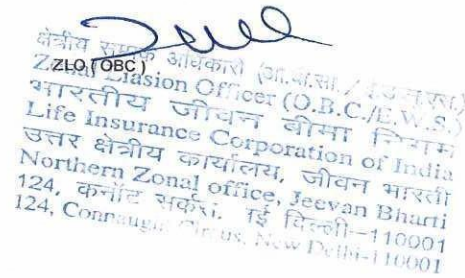 ZLO (OBC)
क्षेत्रीय सम्पर्क अधिकारी (अ.पि.
Zonal Liasion Officer (O.B.C./E.W.S.)
भारतीय जीवन बीमा निगम
Life Insurance Corporation of India
उत्तर क्षेत्रीय कार्यालय, जीवन भारती
Northern Zonal office, Jeevan Bharti
124, कनॉट सर्कस, नई दिल्ली-110001
124, Connaught Circus, New Delhi-110001